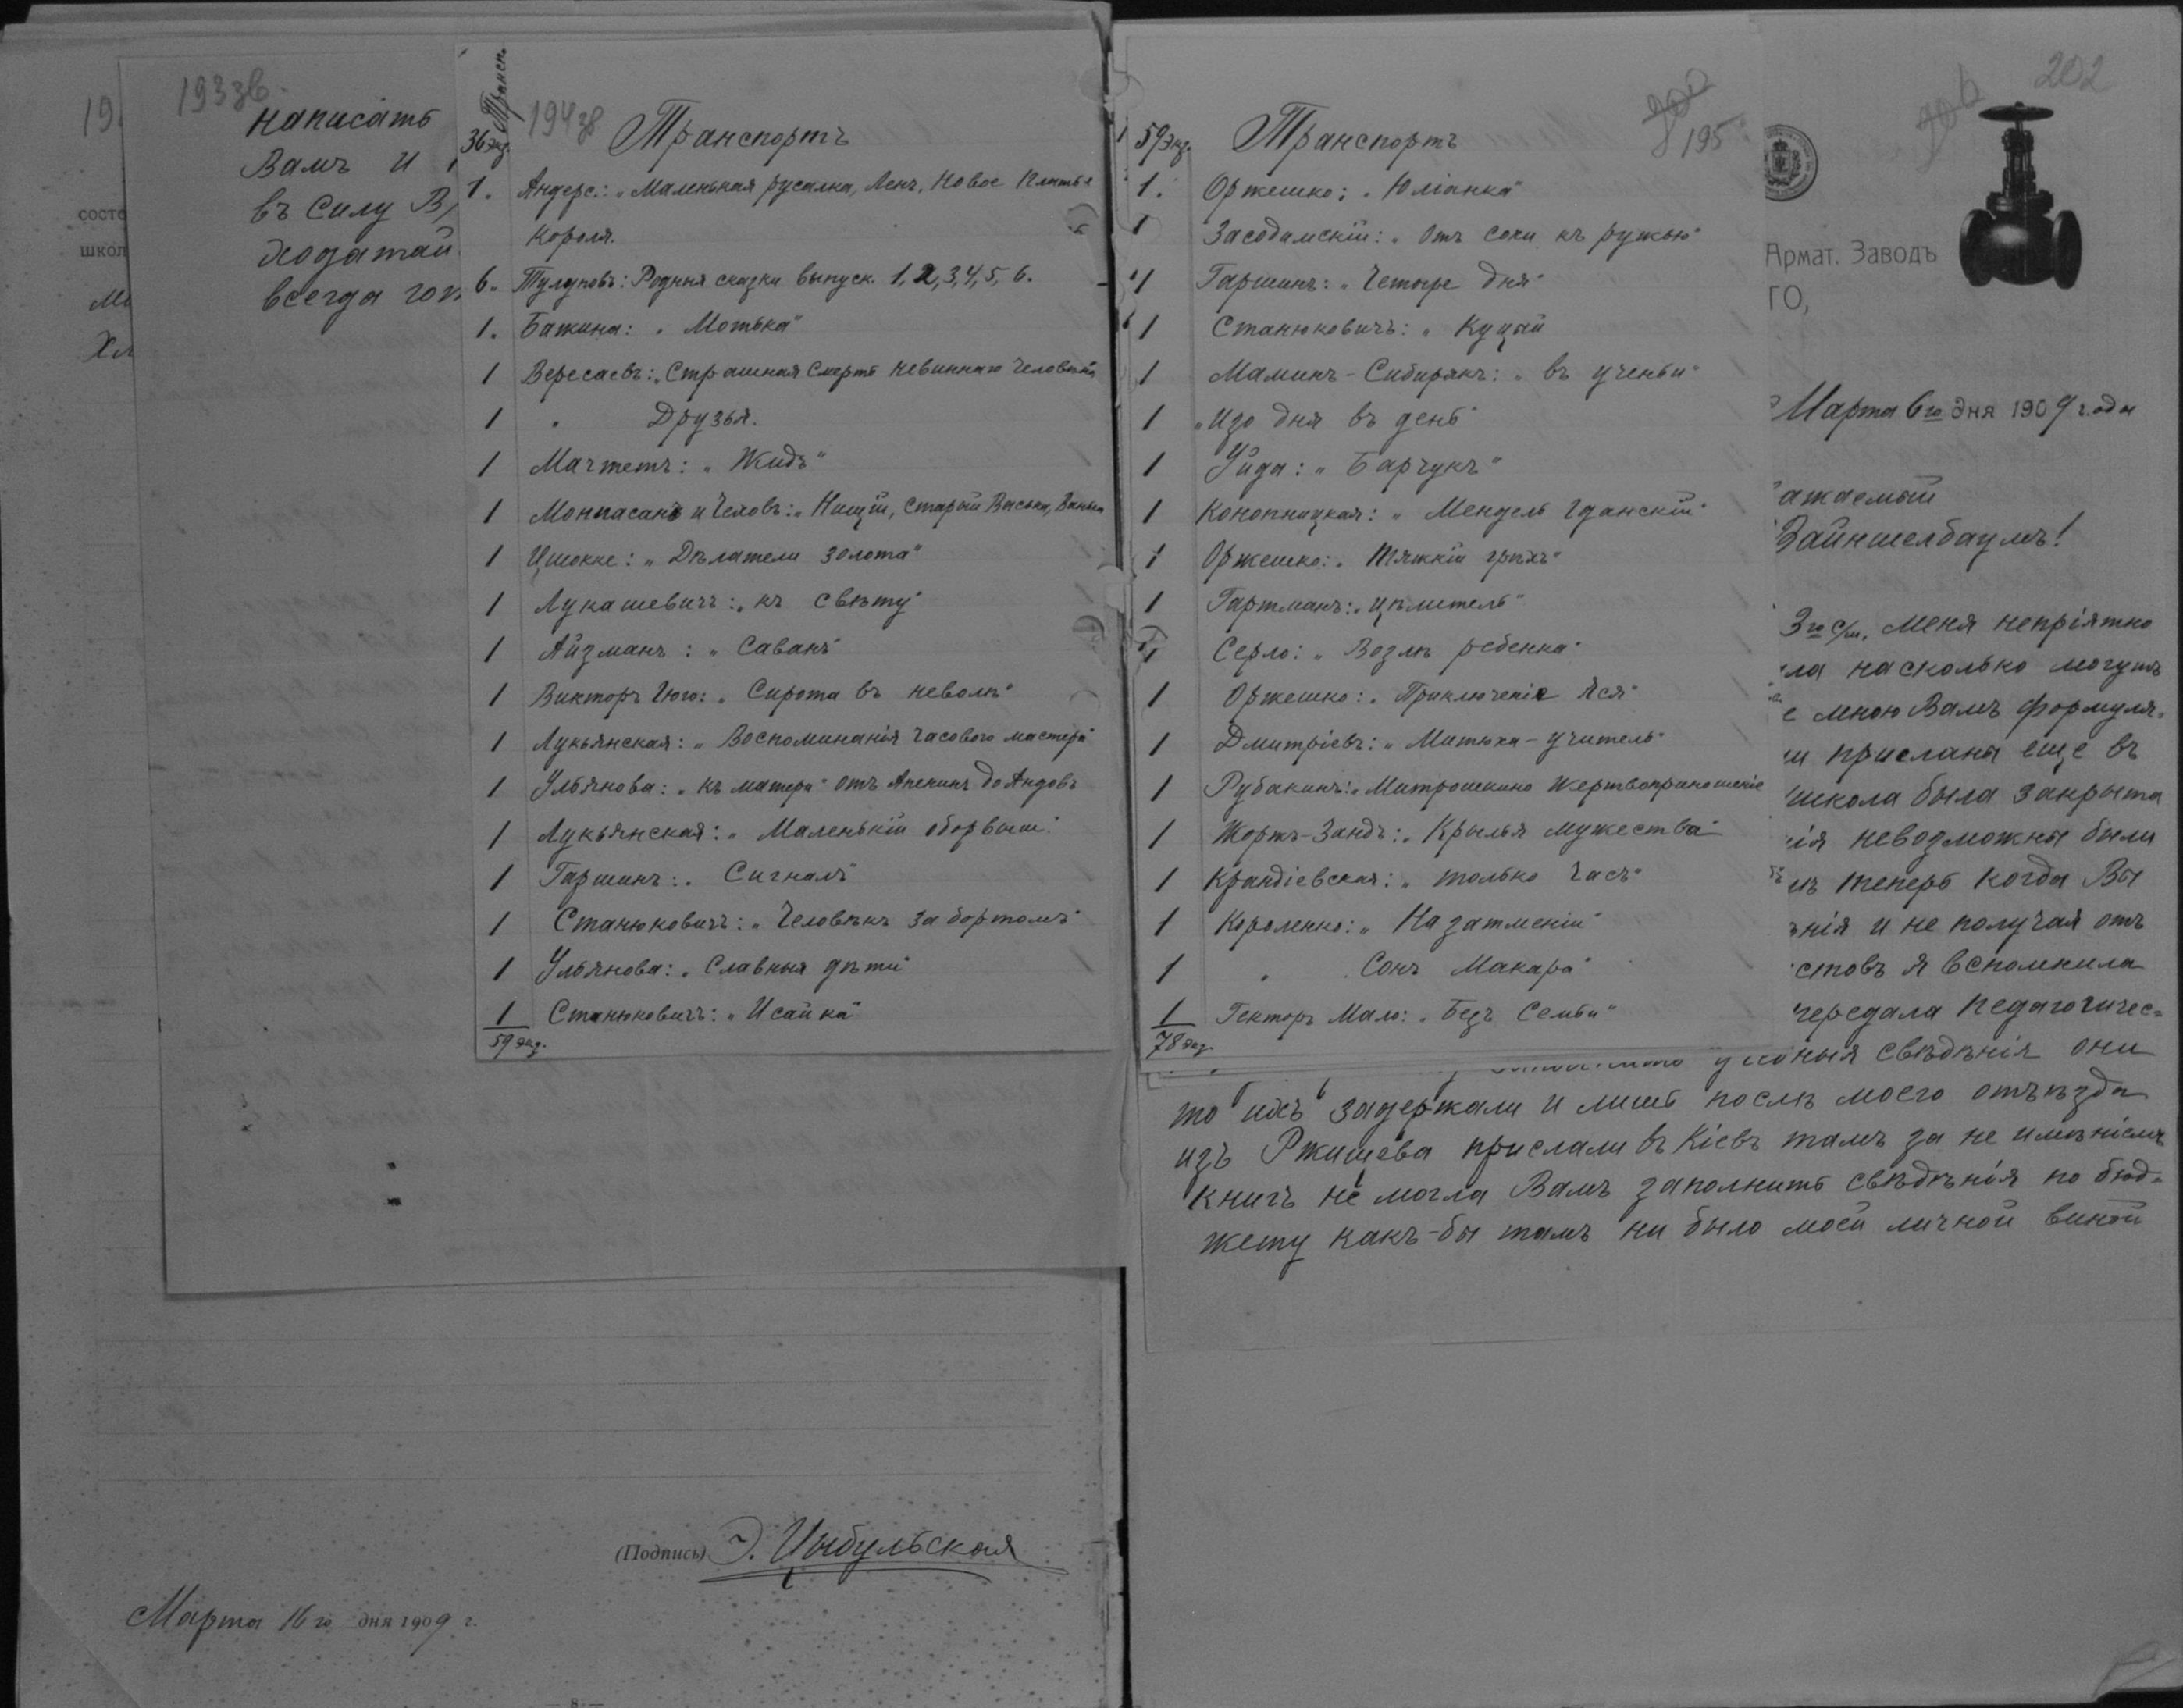 19
193зв.
написать
Вамъ и
въ силу В
ходатай
всегда гот
состо
школ
Мо
Хл
Трансп.
194зв
36 экз. Транспортъ
1. Андерс.: „Маленькая русалка, Ленъ, Новое платье
Короля.
6. Тулуповъ: Родныя сказки выпуск. 1, 2, 3, 4, 5, 6.
1. Бажина: „Мотька"
1 Вересаевъ: „Страшная смерть невиннаго человѣка
1 " Друзья.
1 Мачтетъ: „Жидъ"
1 Мопасанъ и Чеховъ: „Нищій, Старый Васька, Ванька
1 Цшокке: „Дѣлатели золота"
1 Лукашевичъ: „къ свѣту"
1 Айзманъ: „Саванъ"
1 Викторъ Гюго: „Сирота въ неволѣ"
1 Лукьянская: „Воспоминанія часового мастера"
1 Ульянова: „къ матери" отъ Апенинъ до Андовъ
1 Лукьянская: „Маленькій оборвыш"
1 Гаршинъ: „Сигналъ"
1 Станюковичъ: „Человѣкъ за бортомъ"
1 Ульянова: „Славныя дѣти"
1 Станюковичъ: „Исайка"
59 экз.
(Подпись) Э. Цыбульская
Марта 16го дня 1909 г.
— 8 —
195
59 экз. Транспортъ
1. Оржешко: „Юліанка"
1 Засодимскій: „Отъ сохи къ ружью"
1 Гаршинъ: „Четыре дня"
1 Станюковичъ: „Куцый
1 Маминъ-Сибирякъ: „въ ученьи"
1 „Изо дня въ день"
1 Уйда: „Барчукъ"
1 Конопницкая: „Мендель Гданскій"
1 Оржешко: „Тяжкій грѣхъ"
1 Гартманъ: „Цѣлитель"
1 Серло: „Возлѣ ребенка"
1 Оржешко: „Приключеніе Яся"
1 Дмитріевъ: „Митюха-учитель"
1 Рубакинъ: „Митрошкино жертвоприношеніе
1 Жоржъ-Зандъ: „Крылья мужества"
1 Крандіевская: „только часъ"
1 Короленко: „На затменіи"
1 " Сонъ Макара"
1 Гекторъ Мало: „Безъ Семьи"
78 экз.
202
Армат. Заводъ
ГО,
Марта 6го дня 1909 года
ажаемый
Зайншелбаумъ!
3го с/м. меня непріятно
ла насколько могутъ
е мною Вамъ формуля-
и прислана еще въ
школа была закрыта
ія невозможны были
ъ теперь когда Вы
ѣнія и не получая отъ
стовъ я вспомнила
передала педагогичес-
свѣдѣнія они
то ихъ задержали и лишь послѣ моего отъѣзда
изъ Ржищева прислали въ Кіевъ тамъ за не имѣніемъ
книгъ не могла Вамъ заполнить свѣдѣнія по бюд-
жету какъ-бы тамъ ни было моей личной виной